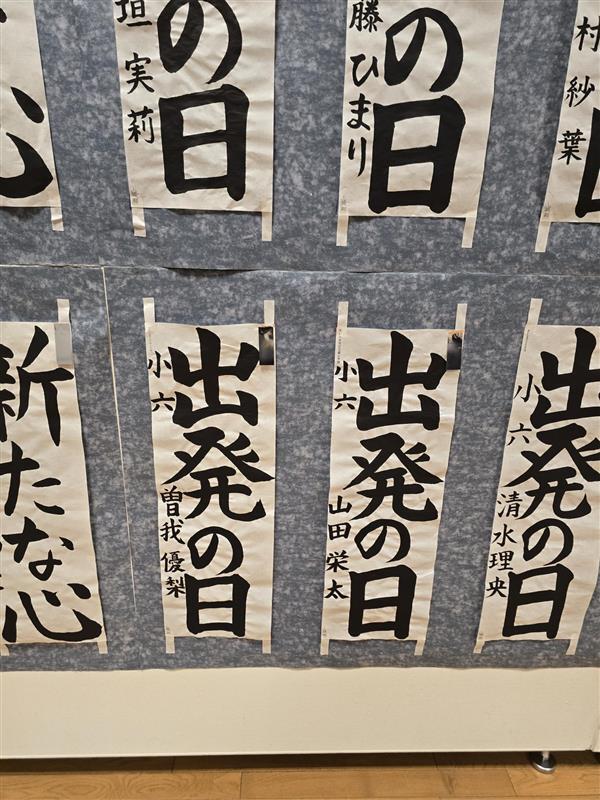 の日
垣実莉
の日
藤ひまり
村紗葉
新たな心
出発の日
小六
曽我優梨
出発の日
小六
山田栄太
出発の日
小六
清水理央